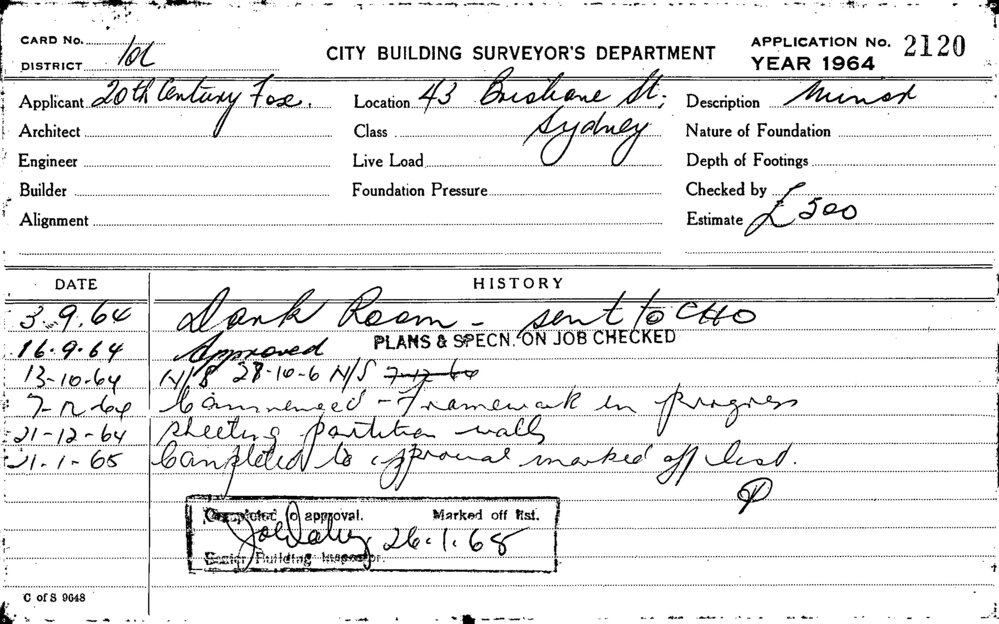 CARD No.
DISTRICT
CITY BUILDING SURVEYOR'S DEPARTMENT
APPLICATION No. 2120
YEAR 1964
Applicant 20th Century Fox.
Location 43 Brisbane St, Sydney
Description Minor
Architect
Class
Nature of Foundation
Engineer
Live Load
Depth of Footings
Builder
Foundation Pressure
Checked by
Alignment
Estimate £500
DATE
HISTORY
3.9.64 Dark Room - sent to CHO
16.9.64 Approved PLANS & SPECN. ON JOB CHECKED
13-10-64 N/S 28-10-6 N/S 7-12-64
7-12-64 Commenced - Framework in progress
21-12-64 sheeting partition walls
21-1-65 Completed to approval marked off list.
Completed to approval. Marked off list.
26.1.65
Senior Building Inspector.
C of S 9648